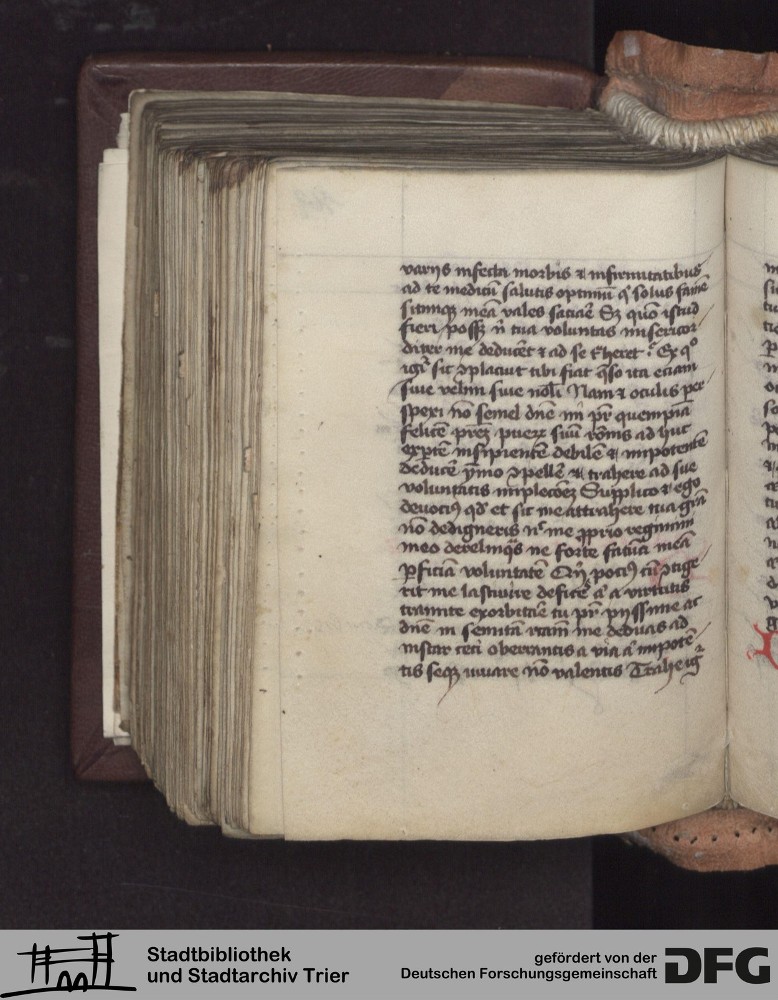 varijs infecta morbis & infirmitatibus
ad te medicū salutis optimū q' solus famē
sitimqꝫ meā vales saciare Sꝫ quō istud
fieri possꝫ n̄ tua voluntas misericor
diter me deduceret & ad se t'heret : Ex qº
igr̄ sic ꝯplacuit tibi fiat q̄so ita eciam
siue velim siue noli Nam & oculis per
spexi nō semel dn̄e mi pr̄ quempiā
felicē suū ad huc
expertē insipientē debilē & impotentē
deducē ymo ꝯpellē & trahere ad sue
voluntatis Supplico & ego
deuociꝰ qd' et sic me attrahere tua grā
nō dedigneris me ꝓprio regimini
meo ne forte fatuā meā
ꝑficiā voluntatē pociꝰ ꝯtige
rit me lasciuire deficē a virtutis
tramite exorbitare tu pr̄ pijssime ac
dn̄e in semitā rectam me deducas ad
instar ceci oberrantis a via a' impotē
tis seqꝫ iuuare nō valentis Trahe igr̄
Stadtbibliothek
und Stadtarchiv Trier
gefördert von der
Deutschen Forschungsgemeinschaft
DFG